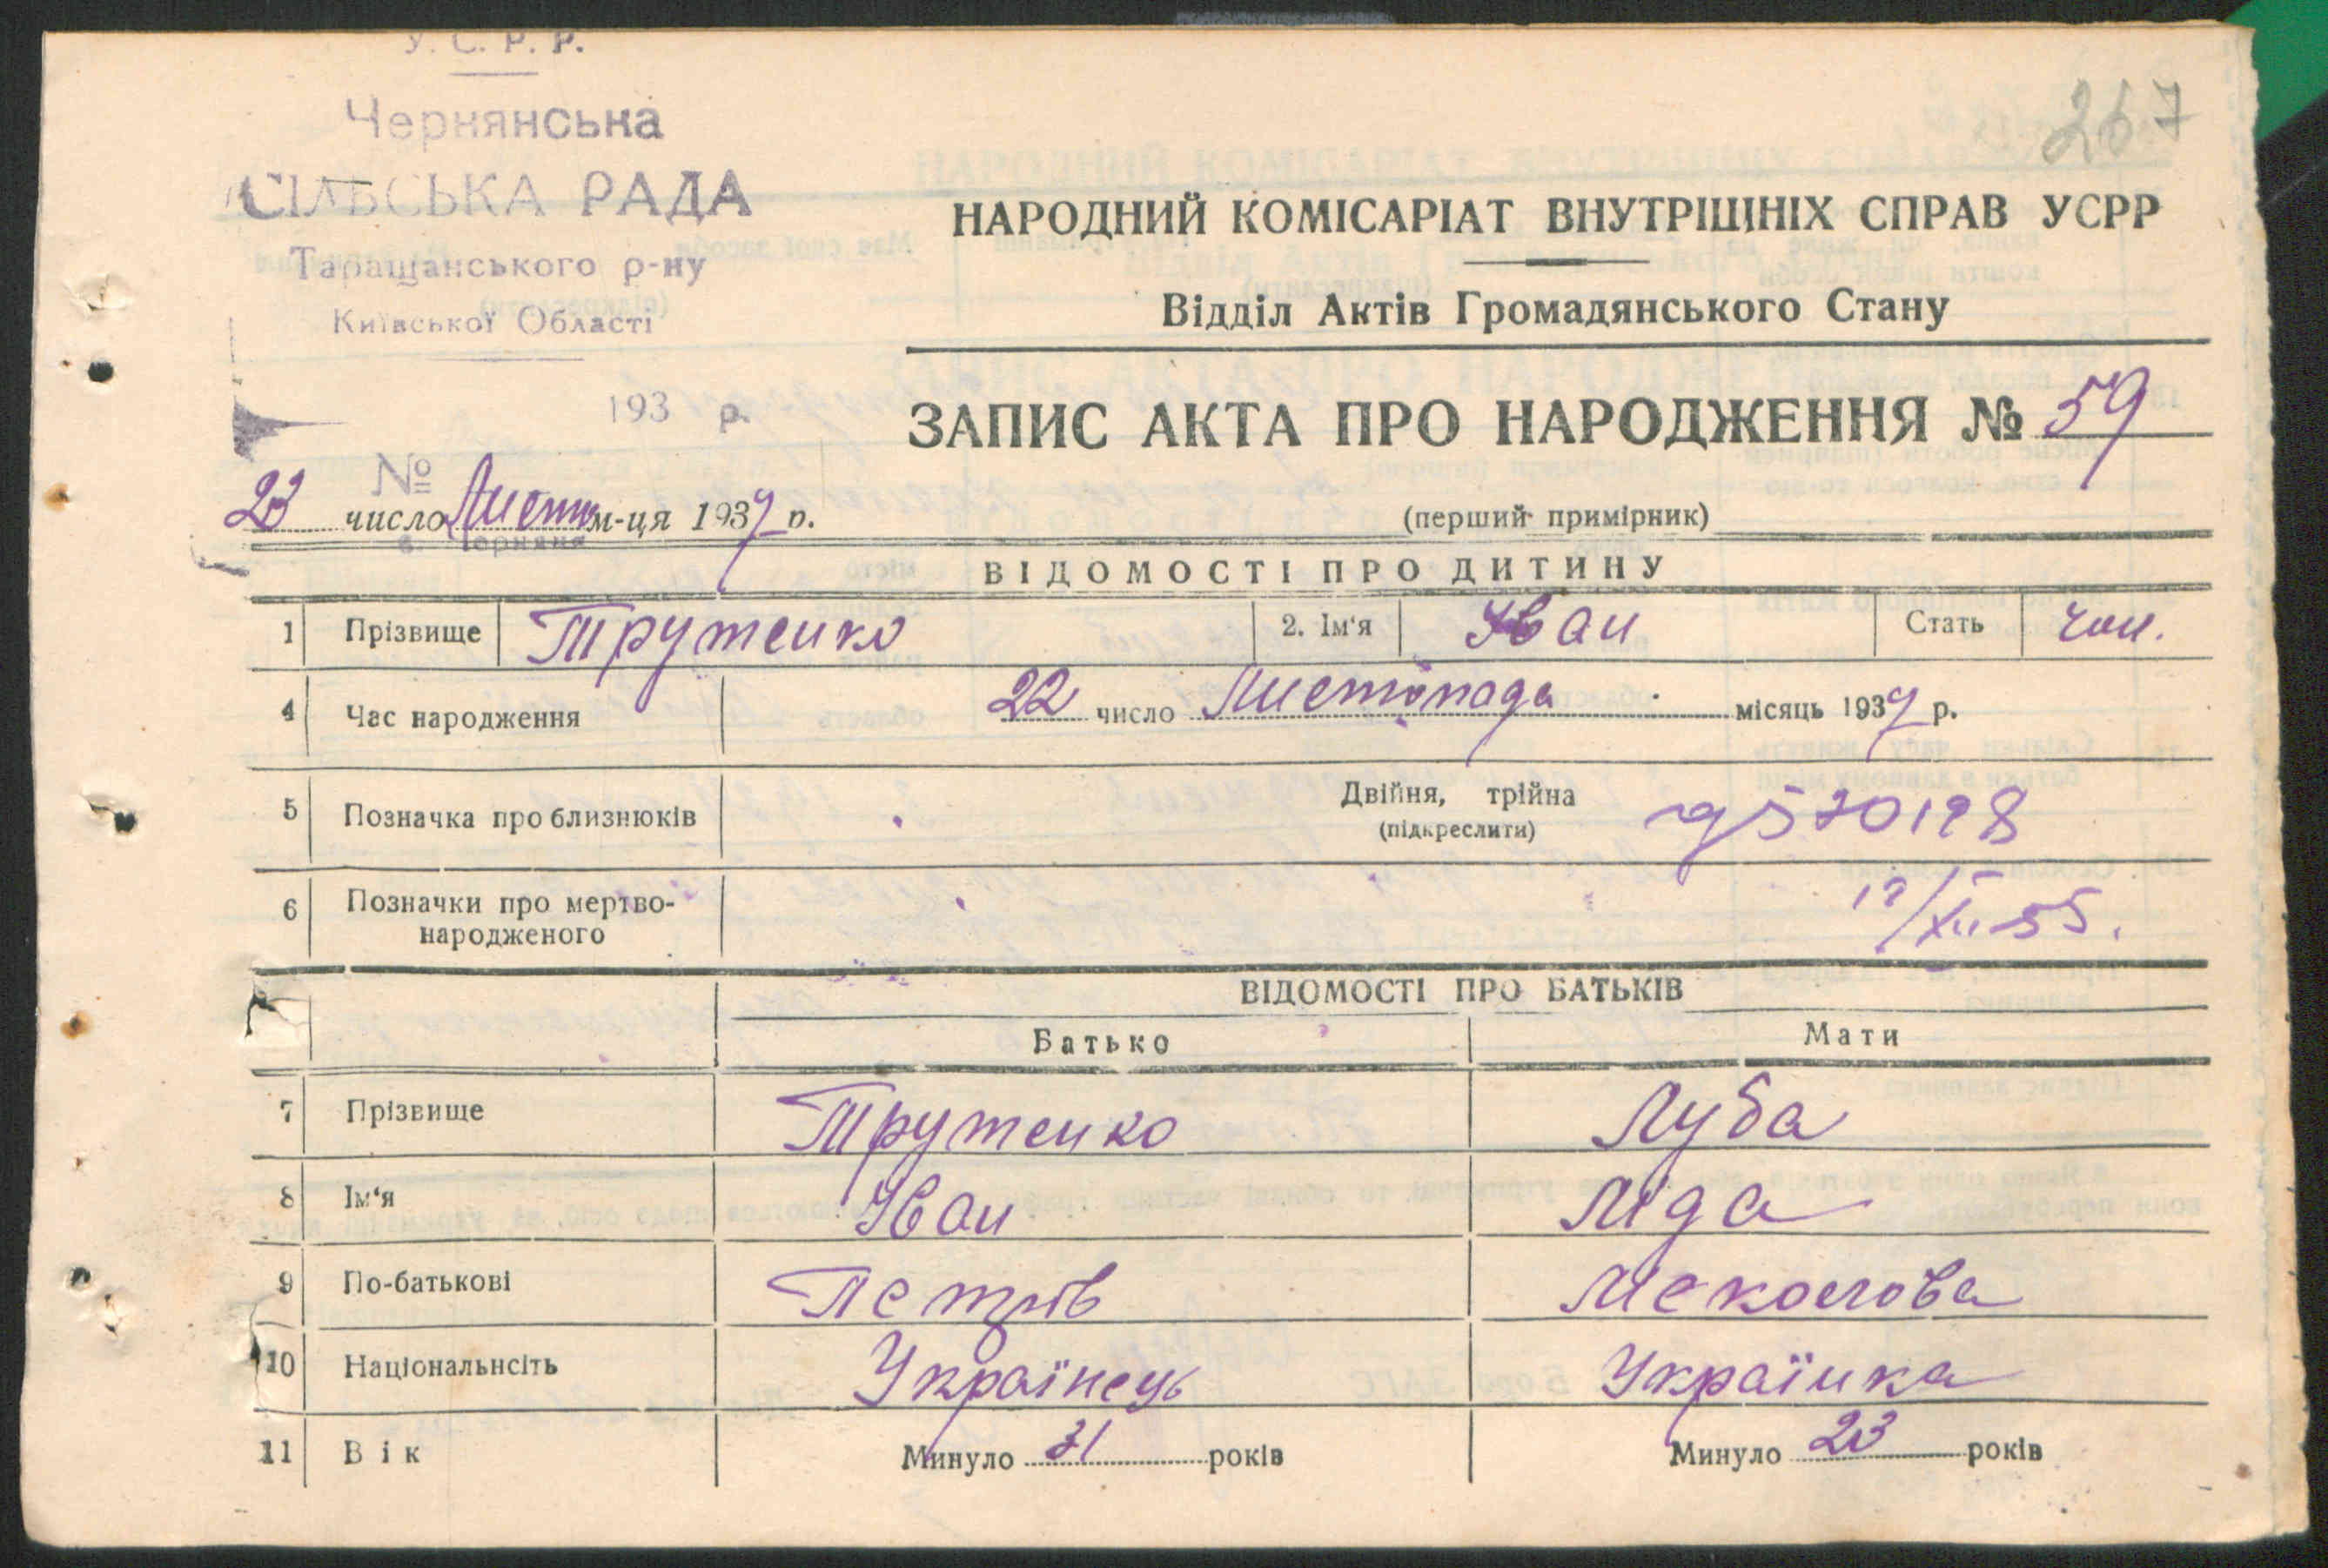 У. С. Р. Р.
Чернянська
СІЛЬСЬКА РАДА
Таращанського р-ну
Київської Області
193 р.
№
267
НАРОДНИЙ КОМІСАРІАТ ВНУТРІШНІХ СПРАВ УСРР
Відділ Актів Громадянського Стану
ЗАПИС АКТА ПРО НАРОДЖЕННЯ № 59
23 число Листоп м-ця 1937 р.
(перший примірник)
ВІДОМОСТІ ПРО ДИТИНУ
1 Прізвище Трутенко 2. Ім'я Іван Стать чол.
4 Час народження 22 число Листопада місяць 1937 р.
5 Позначка про близнюків Двійня, трійна
(підкреслити)
6 Позначки про мертво-
народженого
ВІДОМОСТІ ПРО БАТЬКІВ
Батько Мати
7 Прізвище Трутенко Луба
8 Ім'я Іван Ліда
9 По-батькові Петрів
10 Національнсіть Українець Українка
11 Вік Минуло 31 років Минуло 23 років